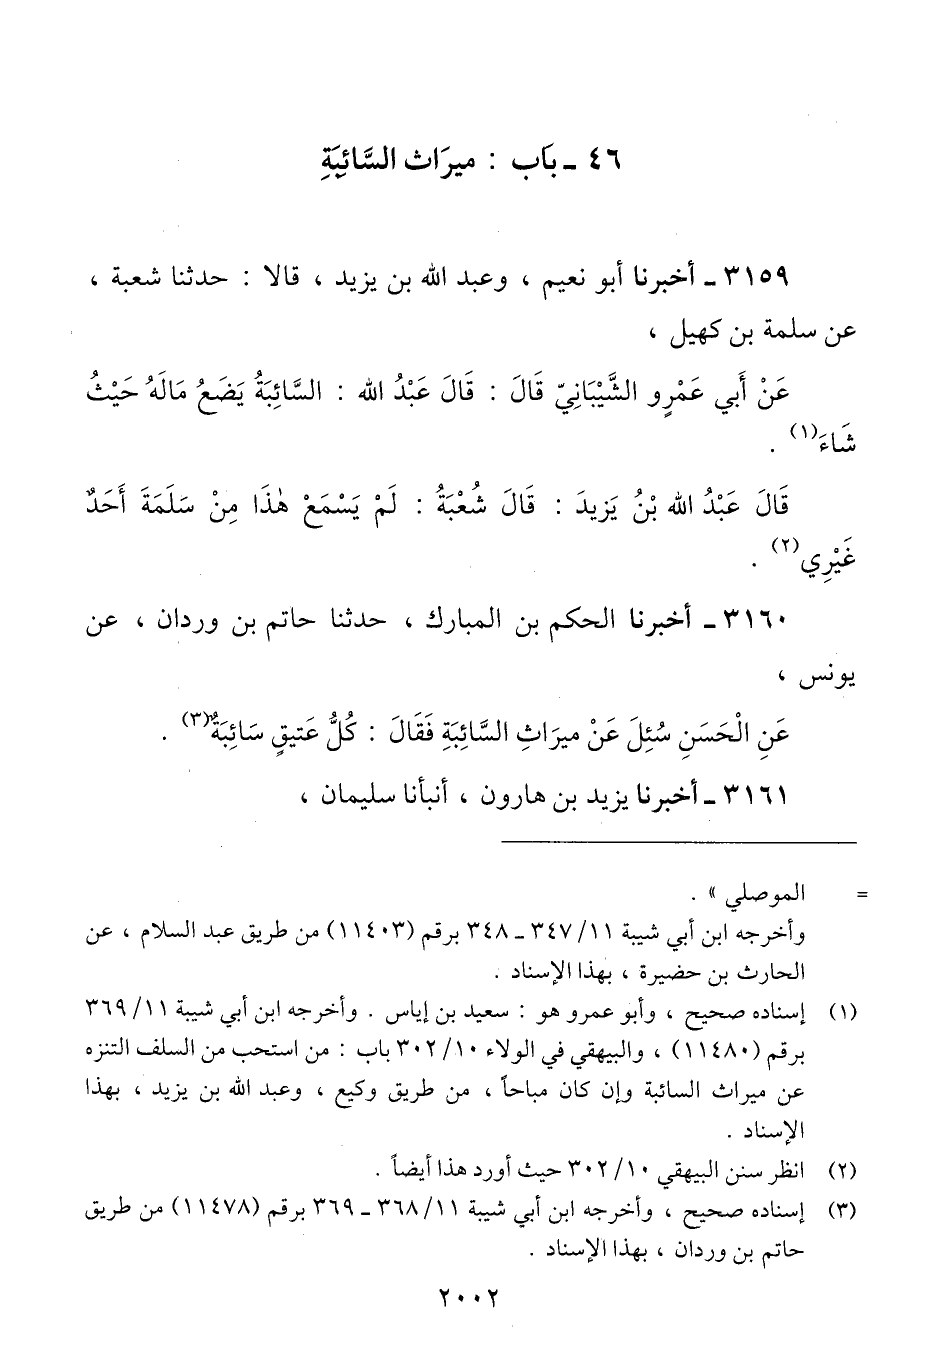 ٤٦ ـ بَاب : ميرَاث السَّائِبَةِ
٣١٥٩ ـ أخبرنا أبو نعيم ، وعبد الله بن يزيد ، قالا : حدثنا شعبة ،
عن سلمة بن كهيل ،
عَنْ أَبي عَمْرٍو الشَّيْبَانِيّ قَالَ : قَالَ عَبْدُ الله : السَّائِبَةُ يَضَعُ مَالَهُ حَيْثُ
شَاءَ(١) .
قَالَ عَبْدُ الله بْنُ يَزِيدَ : قَالَ شُعْبَةُ : لَمْ يَسْمَعْ هٰذَا مِنْ سَلَمَةَ أَحَدٌ
غَيْرِي(٢) .
٣١٦٠ ـ أخبرنا الحكم بن المبارك ، حدثنا حاتم بن وردان ، عن
يونس ،
عَنِ الْحَسَنِ سُئِلَ عَنْ ميرَاثِ السَّائِبَةِ فَقَالَ : كُلُّ عَتيقٍ سَائِبَةٌ(٣) .
٣١٦١ ـ أخبرنا يزيد بن هارون ، أنبأنا سليمان ،
= الموصلي » .
وأخرجه ابن أبي شيبة ١١/ ٣٤٧ ـ ٣٤٨ برقم (١١٤٠٣) من طريق عبد السلام ، عن
الحارث بن حضيرة ، بهذا الإسناد .
(١) إسناده صحيح ، وأبو عمرو هو : سعيد بن إياس . وأخرجه ابن أبي شيبة ١١/ ٣٦٩
برقم (١١٤٨٠) ، والبيهقي في الولاء ١٠/ ٣٠٢ باب : من استحب من السلف التنزه
عن ميراث السائبة وإن كان مباحاً ، من طريق وكيع ، وعبد الله بن يزيد ، بهذا
الإسناد .
(٢) انظر سنن البيهقي ١٠/ ٣٠٢ حيث أورد هذا أيضاً .
(٣) إسناده صحيح ، وأخرجه ابن أبي شيبة ١١/ ٣٦٨ ـ ٣٦٩ برقم (١١٤٧٨) من طريق
حاتم بن وردان ، بهذا الإسناد .
٢٠٠٢